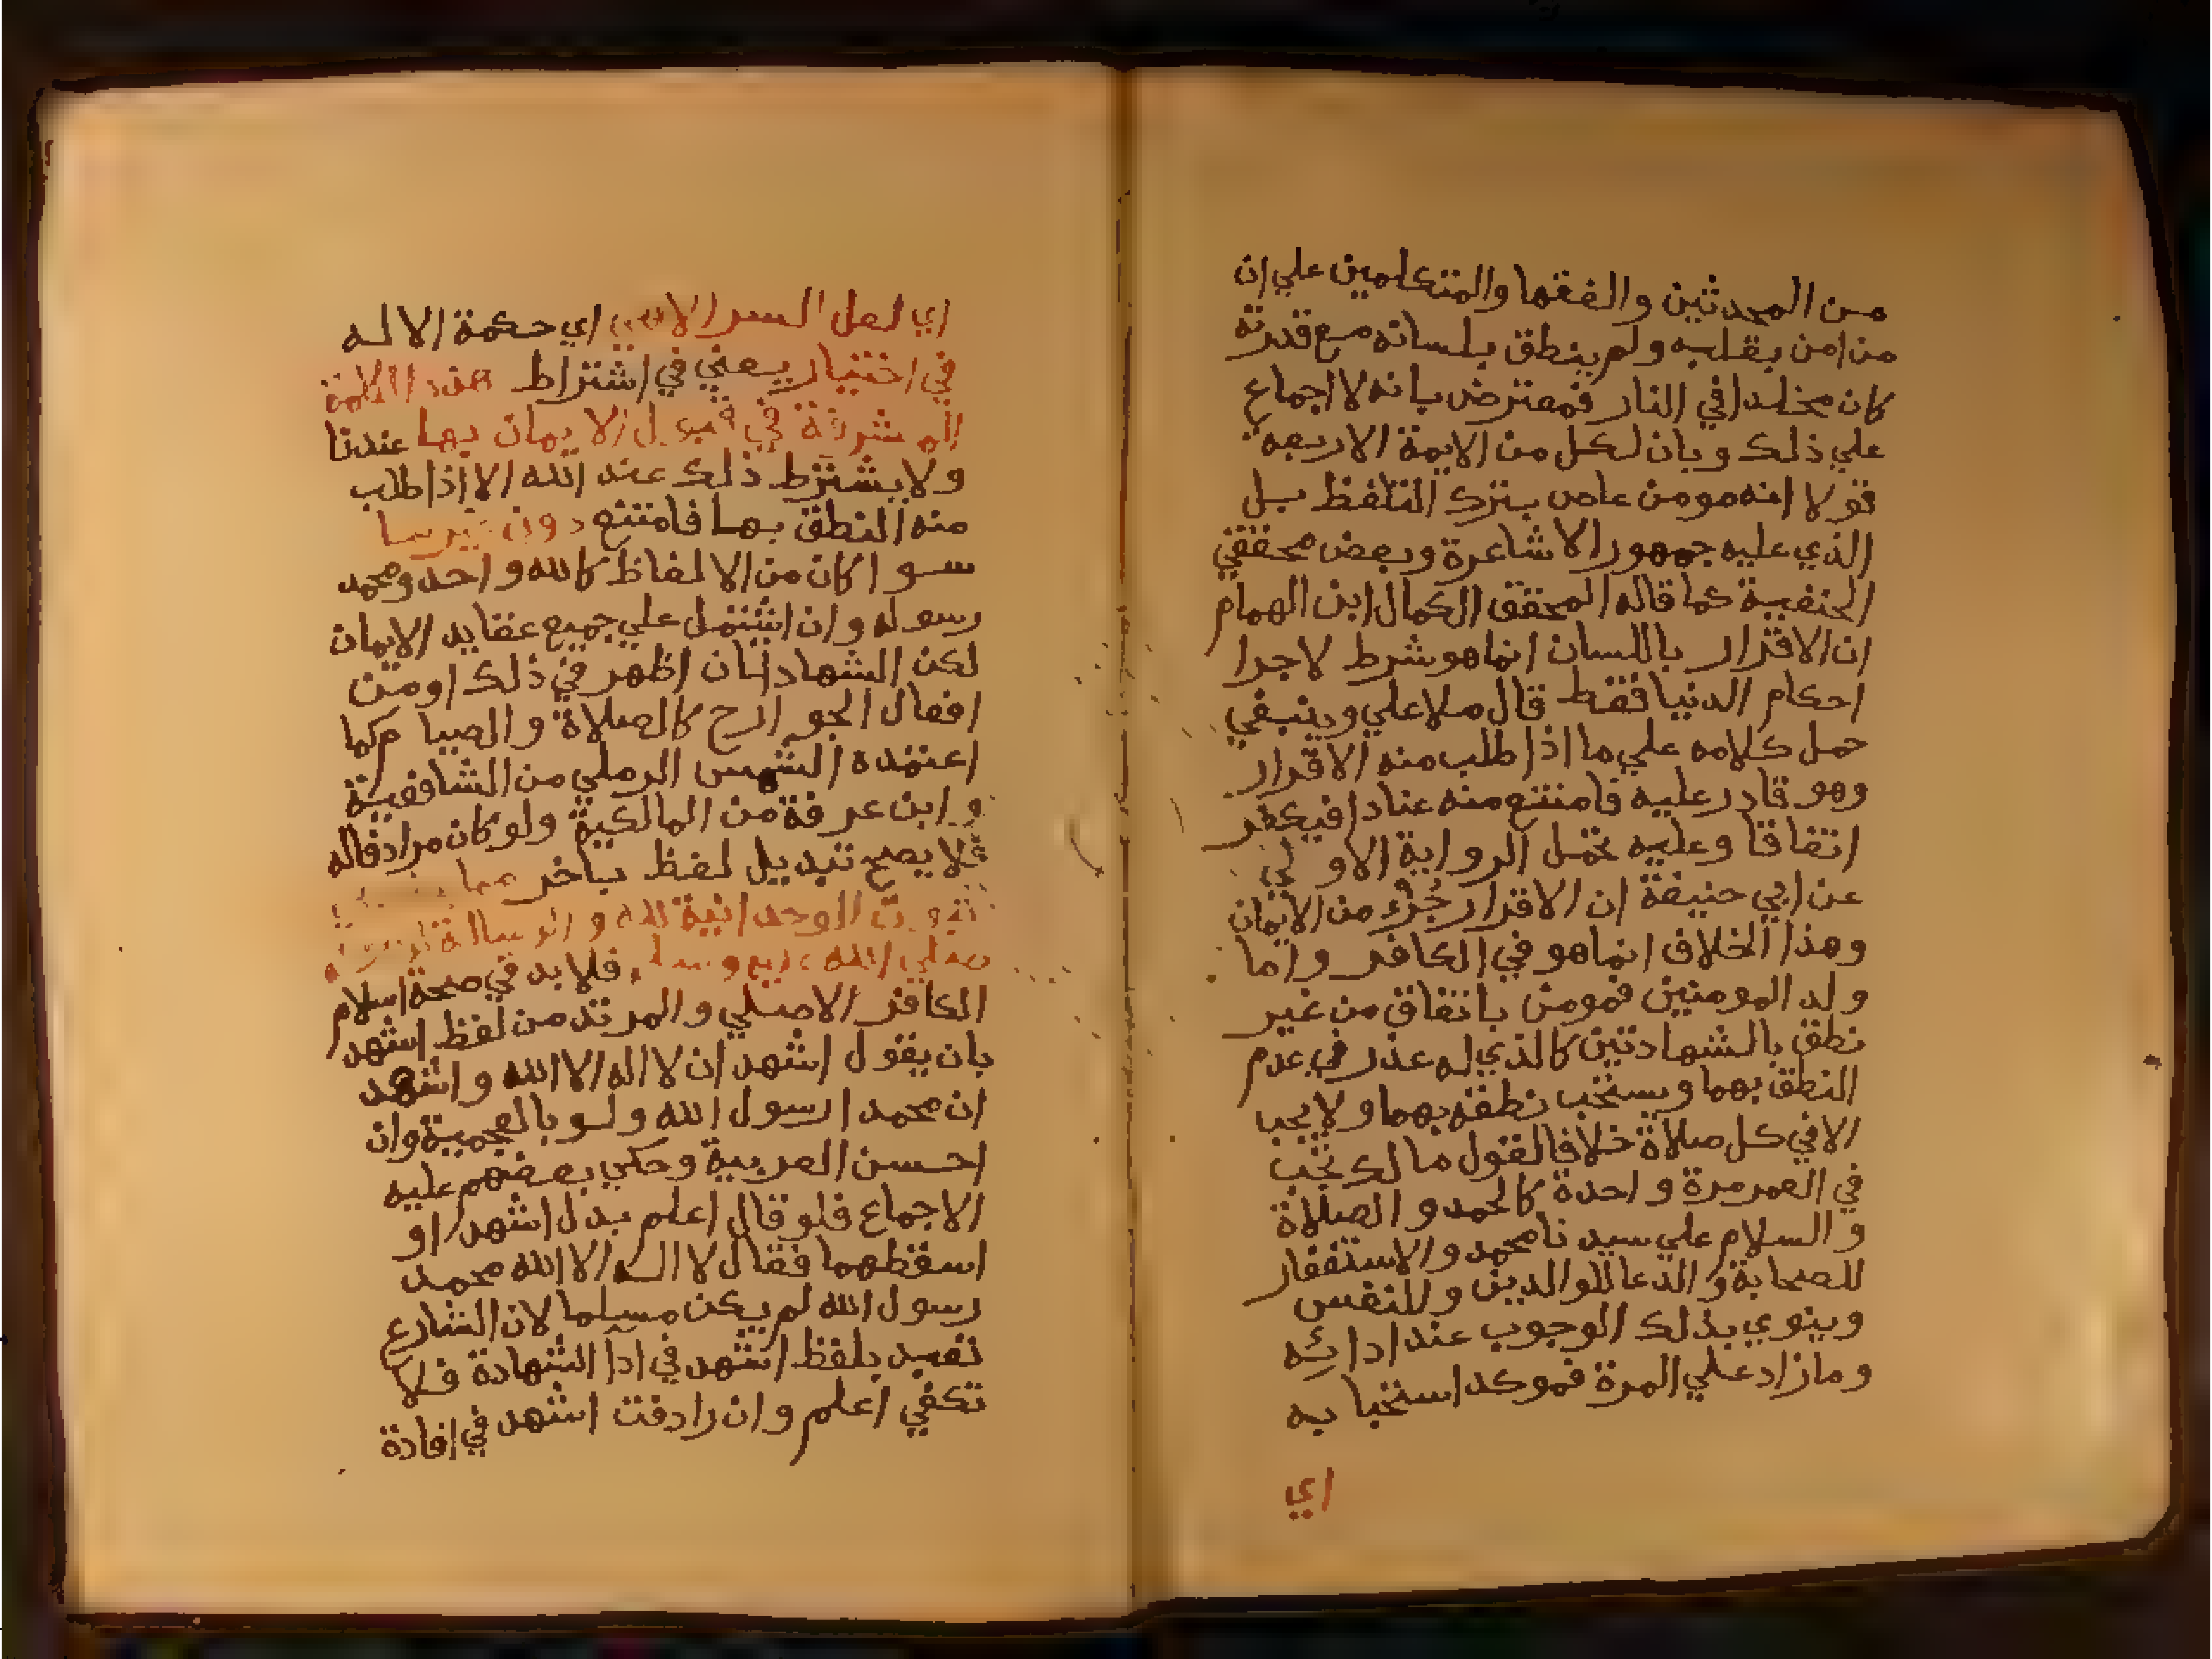 من المحدثين والفقها والمتكلمين علي ان
من امن بقلبه ولم ينطق بلسانه مع قدرته
كان مخلدا في النار فمعترض بانه لا اجماع
علي ذلك وبان لكل من الايمة الاربعه
قولا انه مومن عاص بترك التلفظ بل
الذي عليه جمهور الاشاعرة وبعض محققي
الحنفية كما قاله المحقق الكمال ابن الهمام
ان الاقرار باللسان انما هو شرط لاجرا
احكام الدنيا فقط قال ملا علي وينبغي
حمل كلامه علي ما اذا طلب منه الاقرار
وهو قادر عليه فامتنع منه عنادا فيكفر
اتفاقا وعليه تحمل الرواية الاولي
عن ابي حنيفة ان الاقرار جُزْء من الايمان
وهذا الخلاف انما هو في الكافر واما
ولد المومنين فمومن باتفاق من غير
نطق بالشهادتين كالذي له عذر في عدم
النطق بهما ويستحب نطقه بهما ولا يجب
الا في كل صلاة خلافا لقول مالك تجب
في العمر مرة واحدة كالحمد والصلاة
والسلام علي سيدنا محمد والاستغفار
للصحابة والدعا للوالدين وللنفس
وينوي بذلك الوجوب عند ادائه
وما زاد علي المرة فموكد استحبابه
اي
اي لعل السر الالهي اي حكمة الاله
في اختيار يعني في اشتراط هذه الكلمة
المشرفة في قبول الايمان بها عندنا
ولا يشترط ذلك عند الله الا اذا طلب
منه النطق بها فامتنع دون غيرها
سوا كان من الالفاظ كالله واحد ومحمد
رسوله وان اشتمل علي جميع عقايد الايمان
لكن الشهادتان اظهر في ذلك او من
افعال الجوارح كالصلاة والصيام كما
اعتمده الشمس الرملي من الشافعية
وابن عرفة من المالكية ولو كان مرادفا له
فلا يصح تبديل لفظ باخر مما
ثبوت الوحدانية لله والرسالة
صلي الله عليه وسلم فلا بد في صحة اسلام
الكافر الاصلي والمرتد من لفظ اشهد
بان يقول اشهد ان لا اله الا الله واشهد
ان محمدا رسول الله ولو بالعجمية وان
احسن العربية وحكي بعضهم عليه
الاجماع فلو قال اعلم بدل اشهد او
اسقطهما فقال لا اله الا الله محمد
رسول الله لم يكن مسلما لان الشارع
تعبد بلفظ اشهد في ادآ الشهادة فلا
تكفي اعلم وان رادفت اشهد في افادة